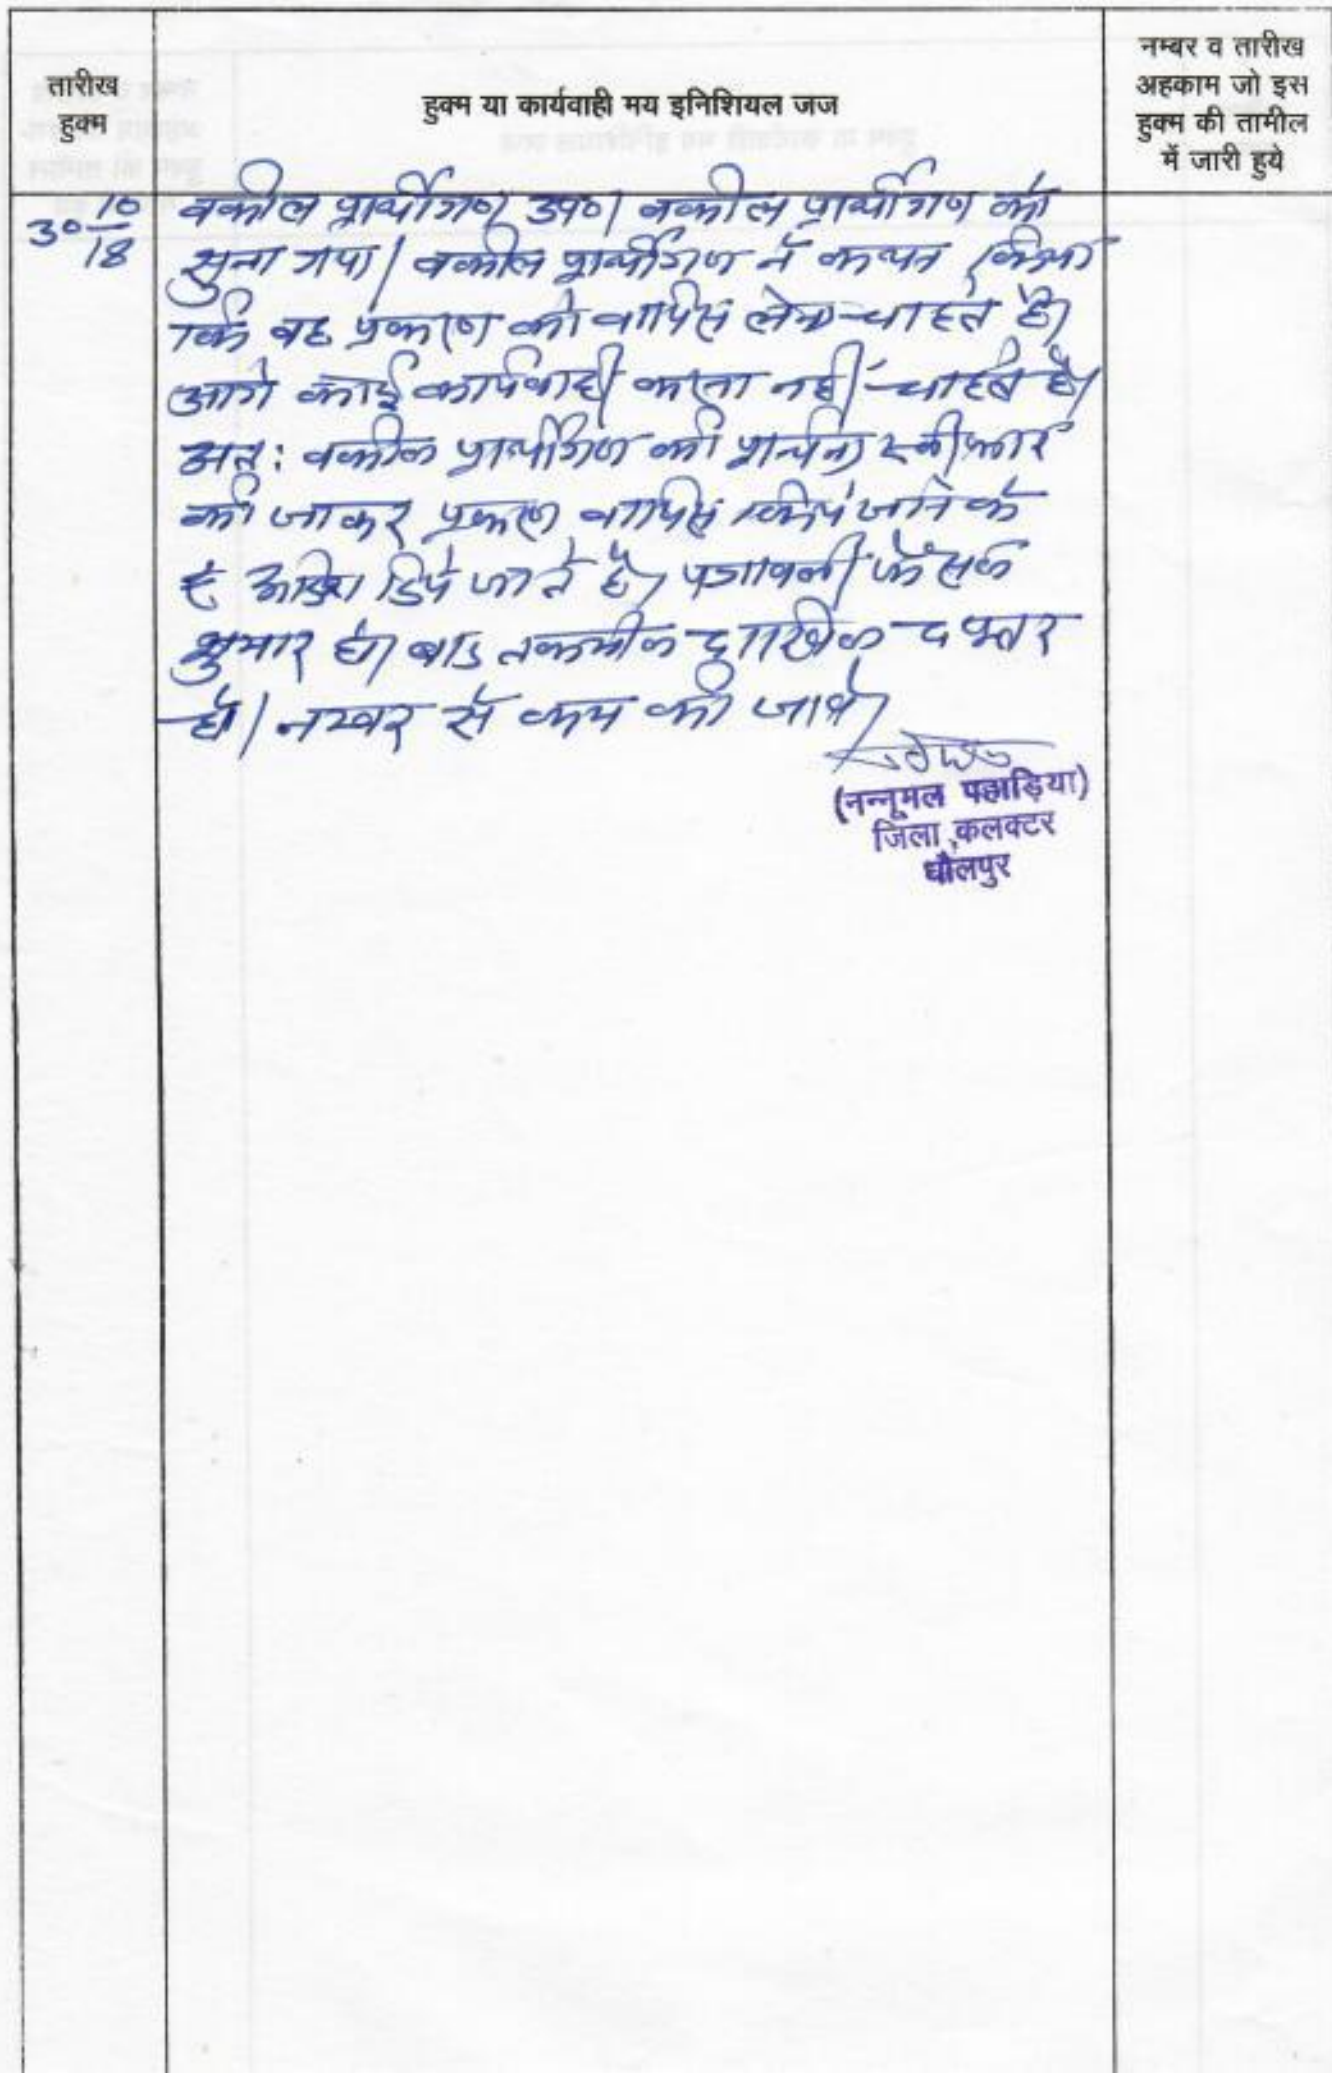 तारीख
हुक्म
हुक्म या कार्यवाही मय इनिशियल जज
नम्बर व तारीख
अहकाम जो इस
हुक्म की तामील
में जारी हुये
30 10/18
वकील प्रार्थीगण उप०। वकील प्रार्थीगण को
सुना गया। वकील प्रार्थीगण ने कथन किया
कि वह प्रकरण को वापिस लेना चाहते है।
आगे कोई कार्यवाही करना नहीं चाहते है।
अतः वकील प्रार्थीगण की प्रार्थना स्वीकार
की जाकर प्रकरण वापिस किये जाने के
आदेश दिये जाते है। पत्रावली फैसल
शुमार हो। बाद तकमील दाखिल दफ्तर
हो। नम्बर से कम की जावे।
(नन्नूमल पहाड़िया)
जिला कलक्टर
धौलपुर